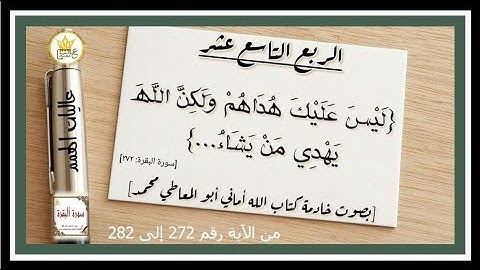 الربع التاسع عشر
{لَيْسَ عَلَيْكَ هُدَاهُمْ وَلَكِنَّ اللَّهَ
يَهْدِي مَنْ يَشَاءُ...}
[سورة البقرة: ٢٧٢]
[بصوت خادمة كتاب الله أماني أبو المعاطي محمد]
من الآية رقم 272 إلى 282
عاليات الهمم
سورة البقرة